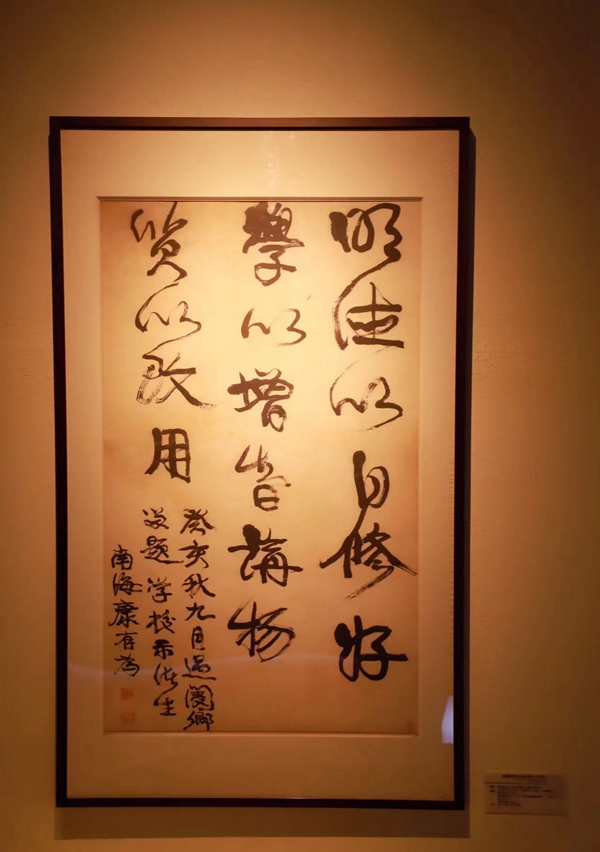 明德以自修好
學以增智講物
質以致用
癸亥秋九月過閿鄉
題学校示諸生
南海康有為